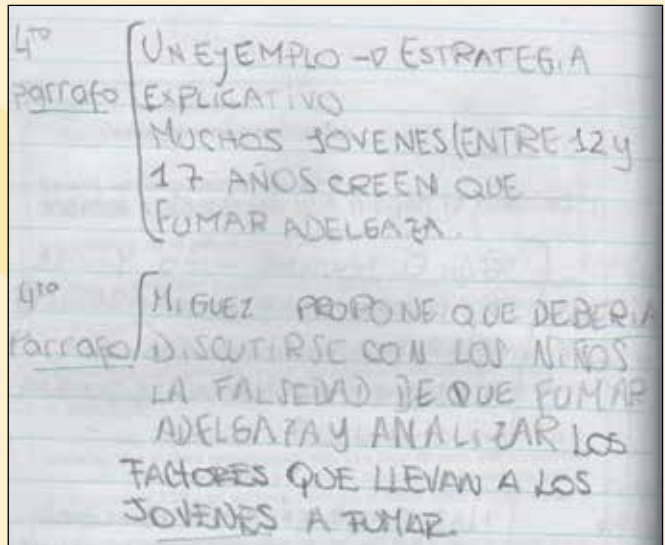 4to UN EJEMPLO → ESTRATEGIA
párrafo EXPLICATIVO
MUCHOS JOVENES (ENTRE 12 y
17 AÑOS CREEN QUE
FUMAR ADELGAZA.
4to MIGUEZ PROPONE QUE DEBERIA
Párrafo DISCUTIRSE CON LOS NIÑOS
LA FALSEDAD DE QUE FUMAR
ADELGAZA Y ANALIZAR LOS
FACTORES QUE LLEVAN A LOS
JOVENES A FUMAR.